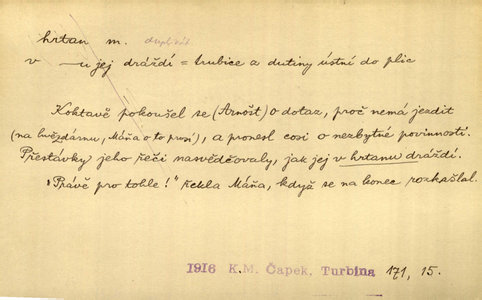 hrtan m. dupl. viz
v —u jej dráždí = trubice a dutiny ústní do plic
Koktavě pokoušel se (Arnošt) o dotaz, proč nemá jezdit
(na hvězdárnu, Máňa o to prosí), a pronesl cosi o nezbytné povinnosti.
Přestávky jeho řeči nasvědčovaly, jak jej v hrtanu dráždí.
„Právě pro tohle!" řekla Máňa, když se na konec rozkašlal.
1916 K.M. Čapek, Turbina 171, 15.